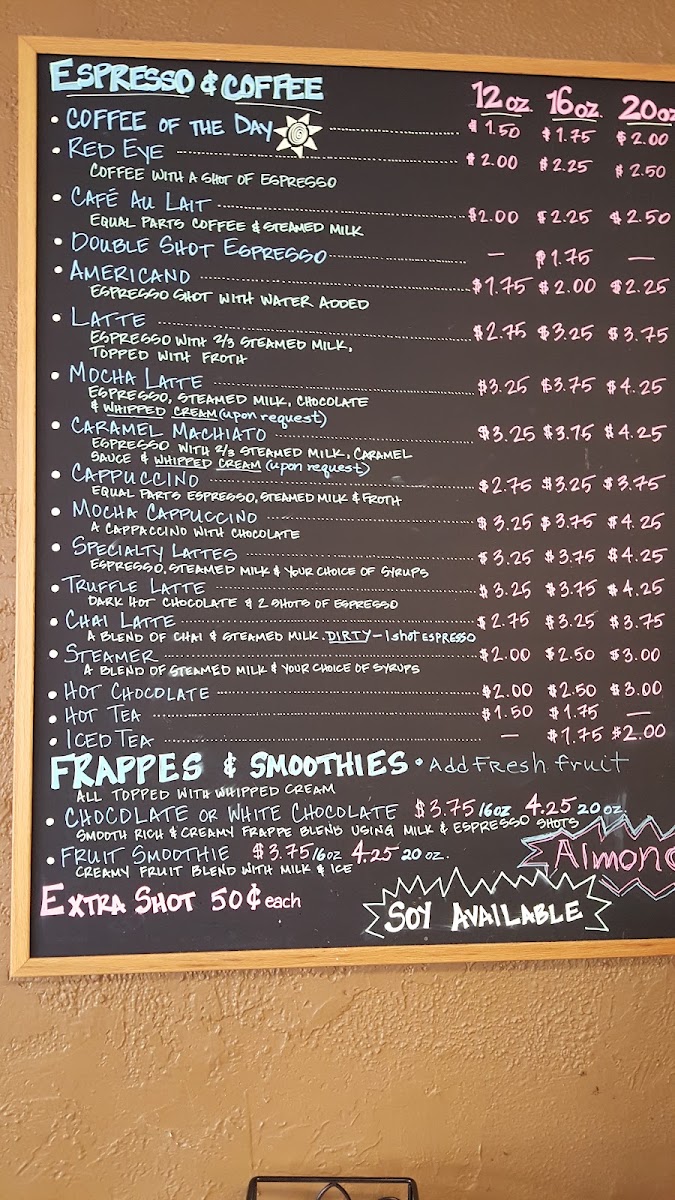 ESPRESSO & COFFEE 12 oz 16 oz 20 oz
• COFFEE OF THE DAY $1.50 $1.75 $2.00
• RED EYE $2.00 $2.25 $2.50
COFFEE WITH A SHOT OF ESPRESSO
• CAFÉ AU LAIT $2.00 $2.25 $2.50
EQUAL PARTS COFFEE & STEAMED MILK
• DOUBLE SHOT ESPRESSO — $1.75 —
• AMERICANO $1.75 $2.00 $2.25
ESPRESSO SHOT WITH WATER ADDED
• LATTE $2.75 $3.25 $3.75
ESPRESSO WITH 2/3 STEAMED MILK,
TOPPED WITH FROTH
• MOCHA LATTE $3.25 $3.75 $4.25
ESPRESSO, STEAMED MILK, CHOCOLATE
& WHIPPED CREAM (upon request)
• CARAMEL MACHIATO $3.25 $3.75 $4.25
ESPRESSO WITH 2/3 STEAMED MILK, CARAMEL
SAUCE & WHIPPED CREAM (upon request)
• CAPPUCCINO $2.75 $3.25 $3.75
EQUAL PARTS ESPRESSO, STEAMED MILK & FROTH
• MOCHA CAPPUCCINO $3.25 $3.75 $4.25
A CAPPACCINO WITH CHOCOLATE
• SPECIALTY LATTES $3.25 $3.75 $4.25
ESPRESSO, STEAMED MILK & YOUR CHOICE OF SYRUPS
• TRUFFLE LATTE $3.25 $3.75 $4.25
DARK HOT CHOCOLATE & 2 SHOTS OF ESPRESSO
• CHAI LATTE $2.75 $3.25 $3.75
A BLEND OF CHAI & STEAMED MILK. DIRTY – 1 shot ESPRESSO
• STEAMER $2.00 $2.50 $3.00
A BLEND OF STEAMED MILK & YOUR CHOICE OF SYRUPS
• HOT CHOCOLATE $2.00 $2.50 $3.00
• HOT TEA $1.50 $1.75 —
• ICED TEA — $1.75 $2.00
FRAPPES & SMOOTHIES • Add Fresh fruit
ALL TOPPED WITH WHIPPED CREAM
• CHOCOLATE OR WHITE CHOCOLATE $3.75 16oz 4.25 20 oz.
SMOOTH RICH & CREAMY FRAPPE BLEND USING MILK & ESPRESSO SHOTS
• FRUIT SMOOTHIE $3.75 16oz 4.25 20 oz.
CREAMY FRUIT BLEND WITH MILK & ICE
Almond
EXTRA SHOT 50¢ each
SOY AVAILABLE